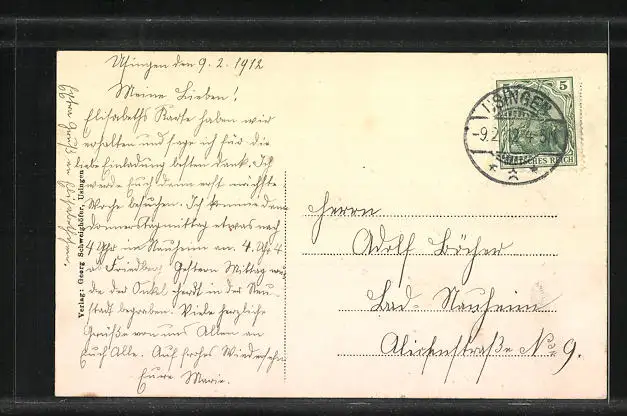 Usingen den 9.2.1912
Meine Lieben!
Elisabeths Karte haben wir
erhalten und sage ich für die
liebe Einladung besten Dank. Ich
werde Euch dann erst nächste
Woche besuchen. Ich komme dann
Donnerstagmittag etwas nach
4 Uhr in Nauheim an. 4 Uhr 4
ab Friedberg. Gestern Mittag wur-
de der Onkel in der Neu-
stadt begraben. Viele herzliche
Grüße von uns Allen an
Euch Alle. Auf frohes Wiedersehn
Eure Marie.
Gruß an
Verlag: Georg Schweighöfer, Usingen
USINGEN
-9.2.12. 4-5N
5
DEUTSCHES REICH
Herrn
Adolf Böcher
Bad-Nauheim
Alicenstraße No 9.